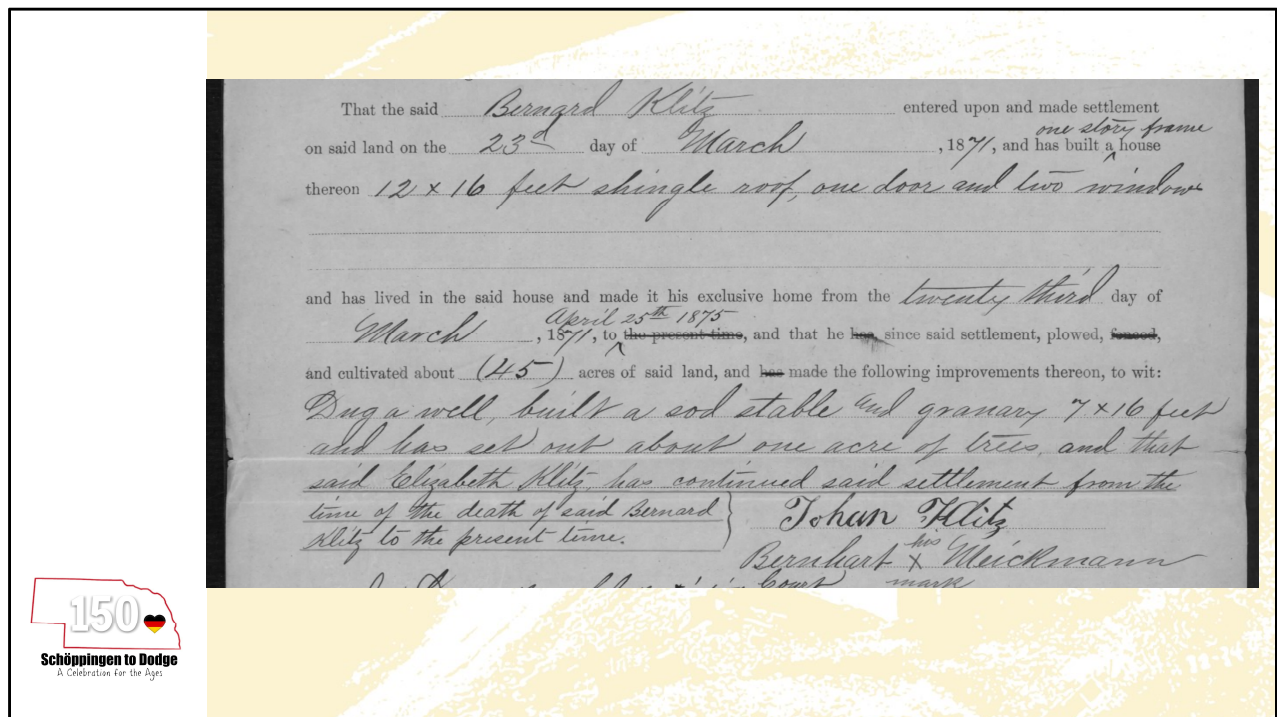 That the said Bernard Klitz entered upon and made settlement
one story frame
on said land on the 23d day of March, 1871, and has built a ^ house
thereon 12 x 16 feet shingle roof, one door and two windows
and has lived in the said house and made it his exclusive home from the twenty third day of
April 25th 1875
March, 1871, to ^ the present time, and that he has since said settlement, plowed, fenced,
and cultivated about (45) acres of said land, and has made the following improvements thereon, to wit:
Dug a well, built a sod stable and granary 7 x 16 feet
and has set out about one acre of trees, and that
said Elizabeth Klitz, has continued said settlement from the
time of the death of said Bernard
Klitz to the present time.
Johan Klitz
his
Bernhart x Meickmann
mark
Court
150
Schöppingen to Dodge
A Celebration for the Ages